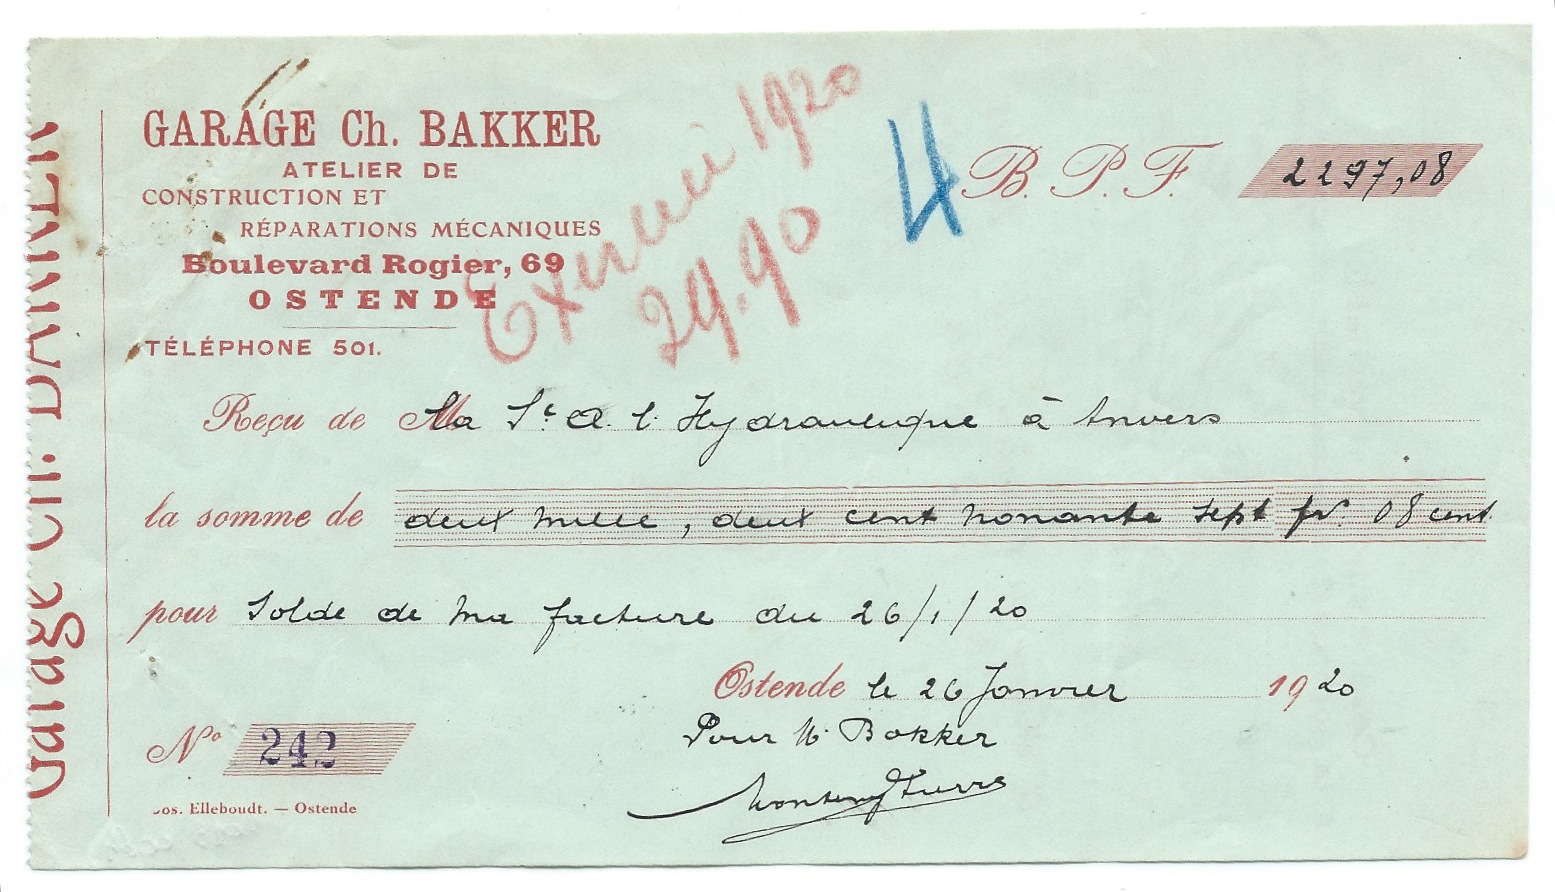 Garage Ch. BAKKER
GARAGE Ch. BAKKER
ATELIER DE
CONSTRUCTION ET
RÉPARATIONS MÉCANIQUES
Boulevard Rogier, 69
OSTENDE
TÉLÉPHONE 501.
1920
29.90
4
B. P. F. 2297,08
Reçu de M la Sᵗ A. l'Hydraulique à Anvers
la somme de deux mille, deux cent nonante sept frs. 08 cent.
pour Solde de ma facture du 26/1/20
Ostende le 26 Janvier 1920
Pour M. Bakker
Nº 242
Jos. Elleboudt. — Ostende